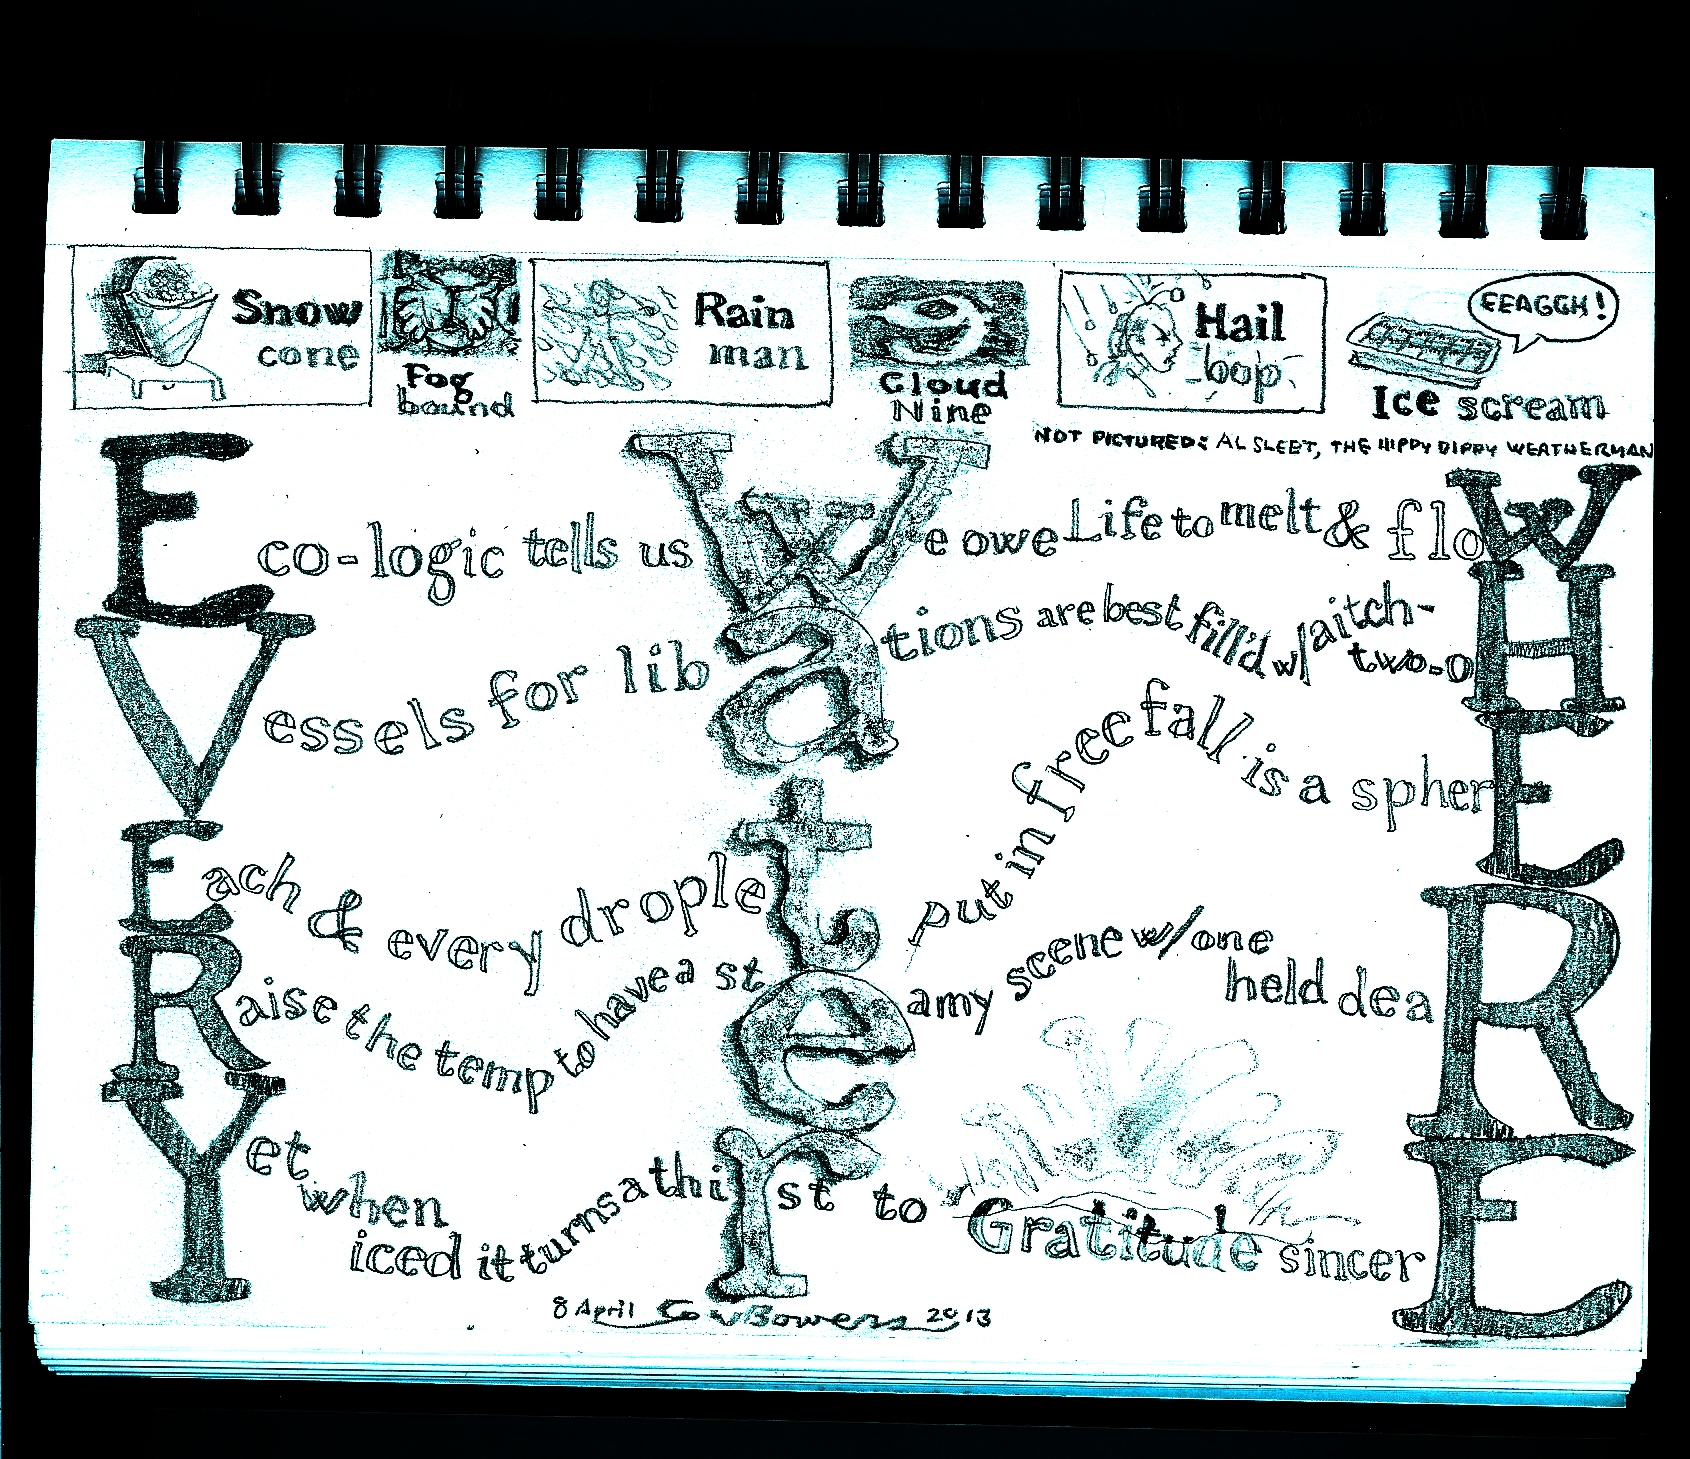 Snow
cone
Fog
bound
Rain
man
Cloud
Nine
Hail
bop
EEAGGH!
Ice scream
NOT PICTURED: AL SLEET, THE HIPPY DIPPY WEATHERMAN
Eco-logic tells us We owe Life to melt & floW
Vessels for libations are best fill'd w/ aitch-two-oH
Each & every droplet put in free fall is a spherE
Raise the temp to have a steamy scene w/ one held deaR
Yet when iced it turns a thirst to Gratitude sincerE
8 April Bowers 2013